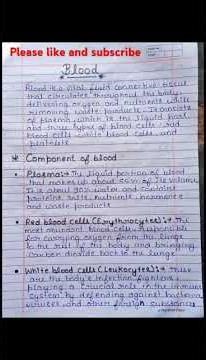 Please like and subscribe
Blood
Blood is a vital fluid connective tissue
that circulates throughout the body,
delivering oxygen and nutrients while
removing waste products. It consists
of plasma, which is the liquid part
and three types of blood cells, red
blood cells, white blood cells, and
platelets
Component of blood
Plasma:- The liquid portion of blood
that makes up about 55% of its volume
It is about 90% water and contains
proteins, salts, nutrients, hormones
and waste products
Red blood cells (Erythrocytes):- The
most abundant blood cells, responsible
for carrying oxygen from the lungs
to the rest of the body and bringing
carbon dioxide back to the lungs
White blood cells (Leukocytes):- These
are the body's infection fighters
playing a crucial role in the immune
system by defending against bacteria
viruses and other foreign substances